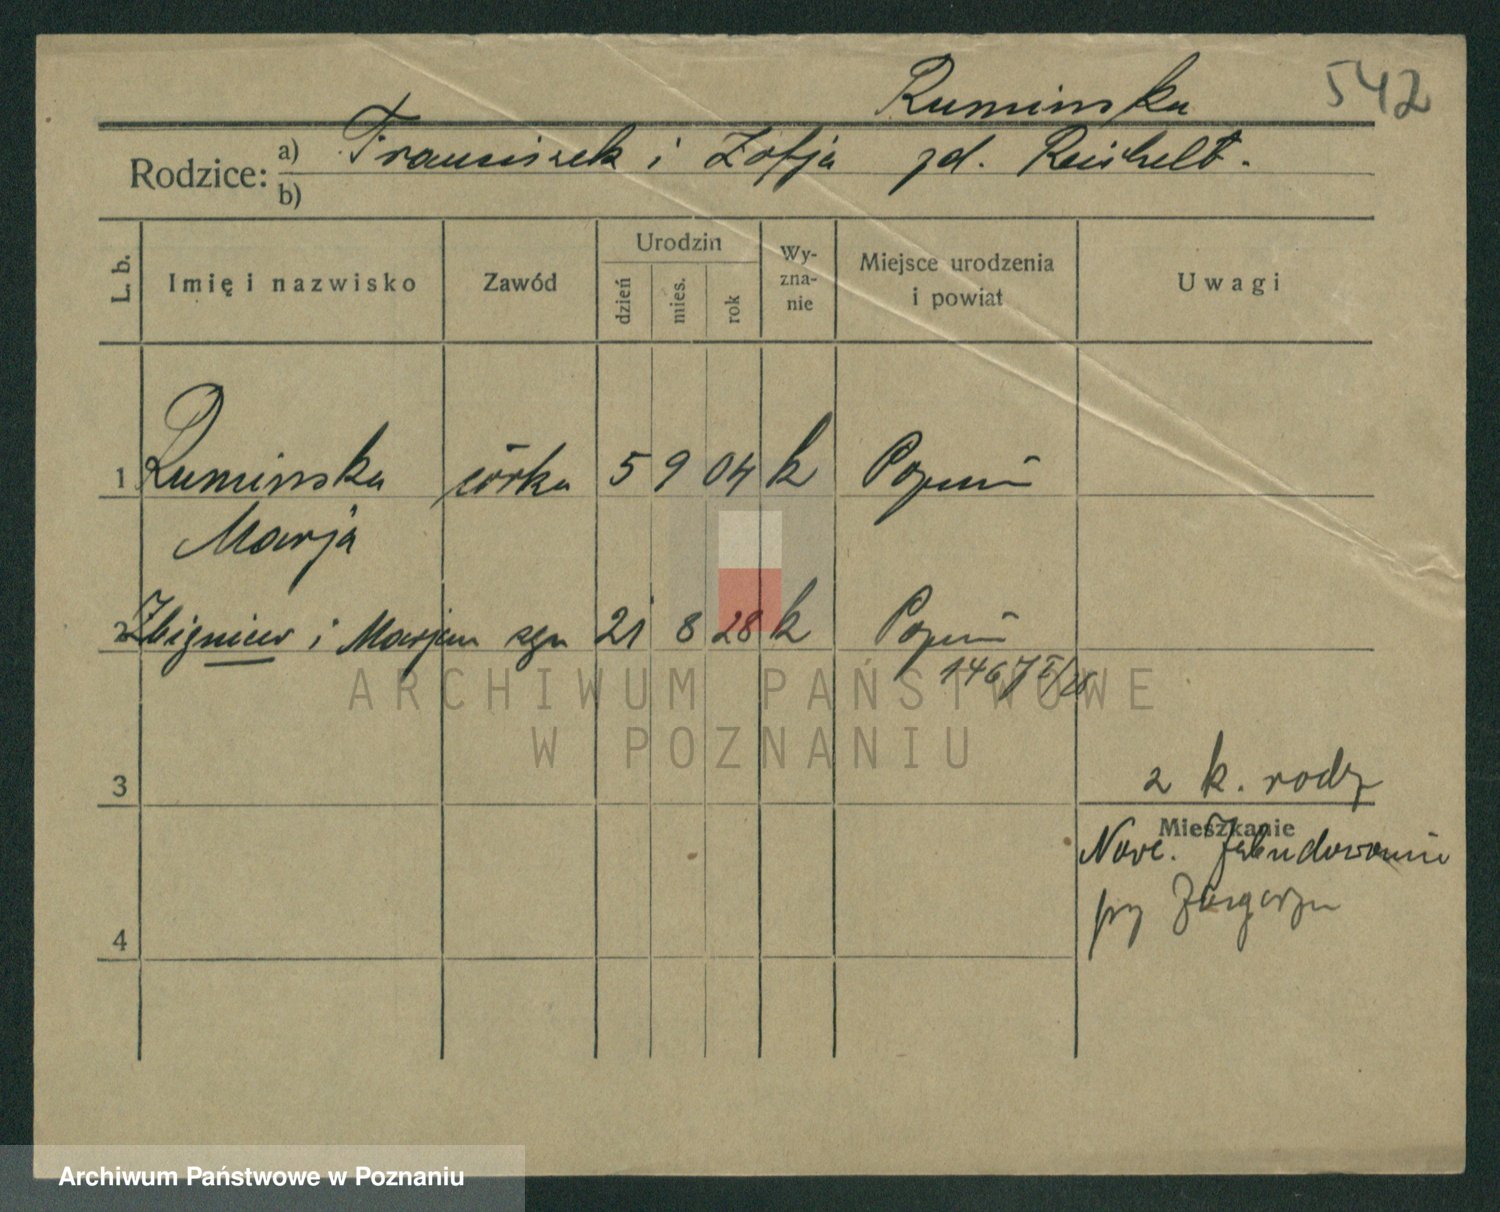 Ruminska 542
Rodzice: a) Franciszek i Zofja zd. Reichelt.
b)
L. b. Imię i nazwisko Zawód Urodzin dzień mies. rok Wyznanie Miejsce urodzenia i powiat Uwagi
1 Ruminska córka 5 9 04 k Poznań
Marja
2 Zbigniew i Marjan syn 21 8 28 k Poznań
1467
ARCHIWUM PAŃSTWOWE
W POZNANIU
3
2 k. rodz
Mieszkanie
Nowe Zabudowanie
przy
4
Archiwum Państwowe w Poznaniu